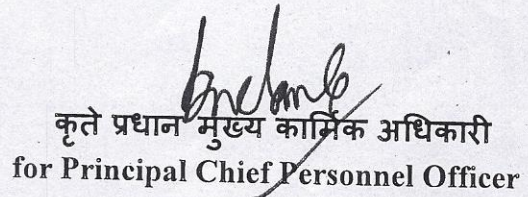 कृते प्रधान मुख्य कार्मिक अधिकारी
for Principal Chief Personnel Officer